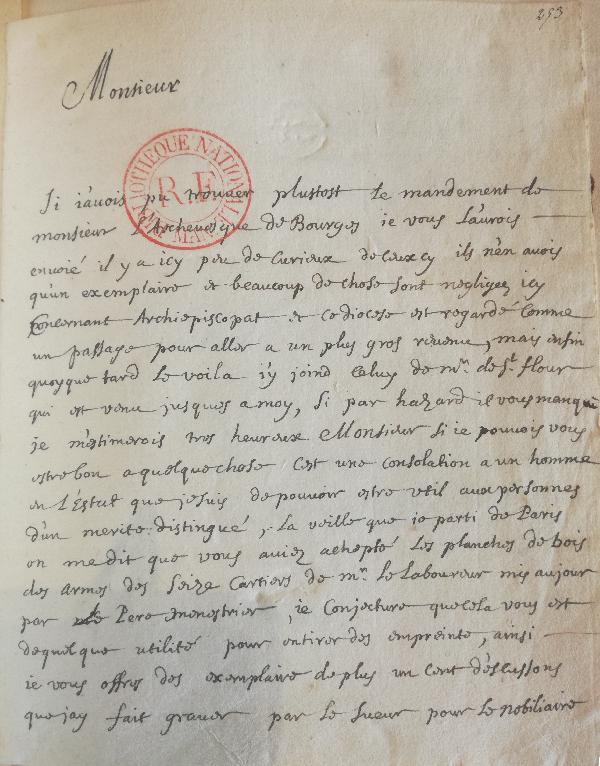 253
Monsieur
BIBLIOTHEQUE NATIONALE
R.F.
MANUSCRITS
Si i'avois pu trouver plustost le mandement de
monsieur l'Archevesque de Bourges ie vous l'aurois
envoié il y a icy peu de Curieux de Ceux cy ils n'en avois
qu'un exemplaire et beaucoup de chose sont negligez icy
Concernant Archiepiscopat et ce diocese est regardé Comme
un passage pour aller a un plus gros revenu, mais enfin
quoyque tard le voila i'y joind Celuy de mr. de St. flour
qui est venu jusques a moy, Si par hazard il vous manqu
je m'estimerois tres heureux Monsieur Si ie pouvois vous
estre bon a quelque chose C'est une Consolation a un homme
en l'Estat que je suis de pouvoir estre util aux personnes
d'un merite distingué, la veille que ie parti de Paris
on me dit que vous aviez achepté les planches de bois
des Armes des Seize Cartiers de mr. le Laboureur mis aujour
par le Pere menestrier, ie Conjecture que cela vous est
de quelque utilité pour en tirer des empreinte, ainsi
ie vous offres des exemplaire de plus un Cent d'escussons
que jay fait graver par le Sueur pour le nobiliaire